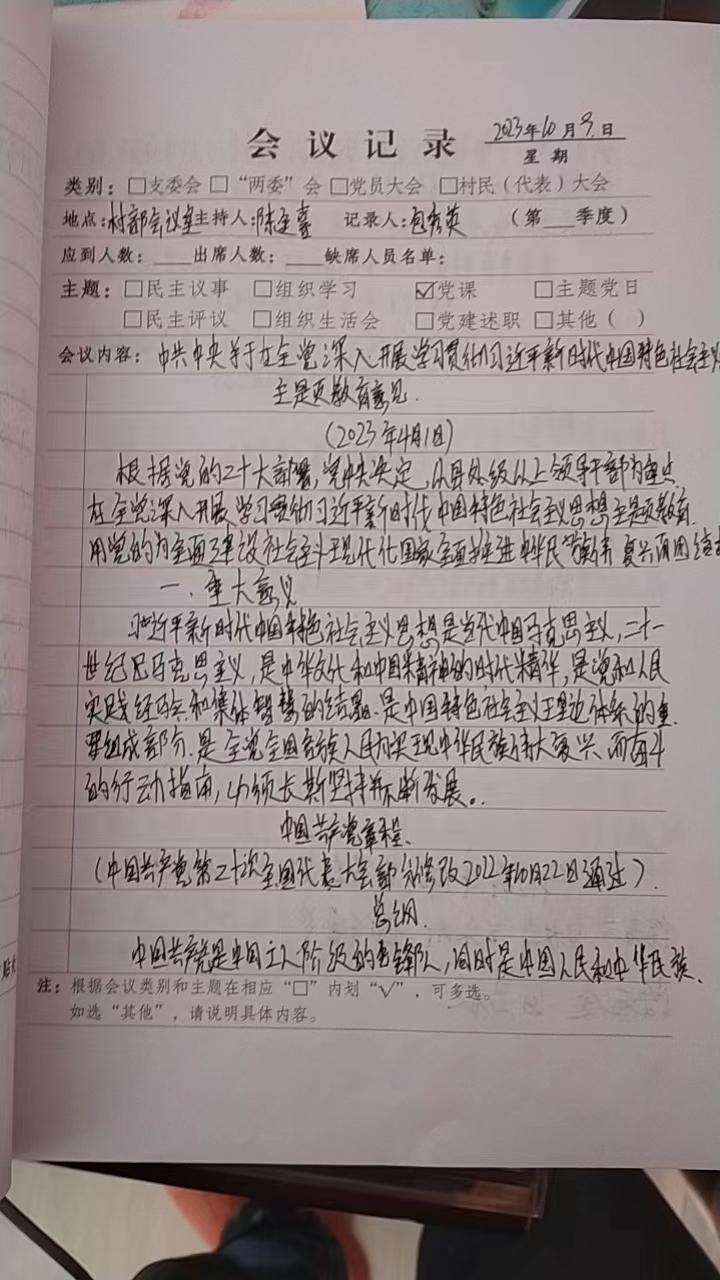 会议记录
2023年10月9日
星期
类别：□支委会 □“两委”会 □党员大会 □村民（代表）大会
地点：村部会议室 主持人：陈 喜 记录人：包秀英 （第__季度）
应到人数：____ 出席人数：____ 缺席人员名单：
主题：□民主议事 □组织学习 ☑党课 □主题党日
□民主评议 □组织生活会 □党建述职 □其他（ ）
会议内容：中共中央关于在全党深入开展学习贯彻习近平新时代中国特色社会主义
主题教育意见.
（2023年4月1日）
根据党的二十大部署，党中央决定，从县处级以上领导干部为重点
在全党深入开展学习贯彻习近平新时代中国特色社会主义思想主题教育.
用党的 为全面建设社会主义现代化国家全面推进中华民族伟大复兴而团结
一. 重大意义
习近平新时代中国特色社会主义思想是当代中国马克思主义，二十一
世纪马克思主义，是中华文化和中国精神的时代精华，是党和人民
实践经验和集体智慧的结晶.是中国特色社会主义理论体系的重
要组成部分.是全党全国各族人民为实现中华民族伟大复兴而奋斗
的行动指南，必须长期坚持并不断发展。
中国共产党章程.
（中国共产党第二十次全国代表大会部分修改2022年10月22日通过）.
总纲.
中国共产党是中国工人阶级的先锋队，同时是中国人民和中华民族.
注：根据会议类别和主题在相应“□”内划“√”，可多选。
如选“其他”，请说明具体内容。